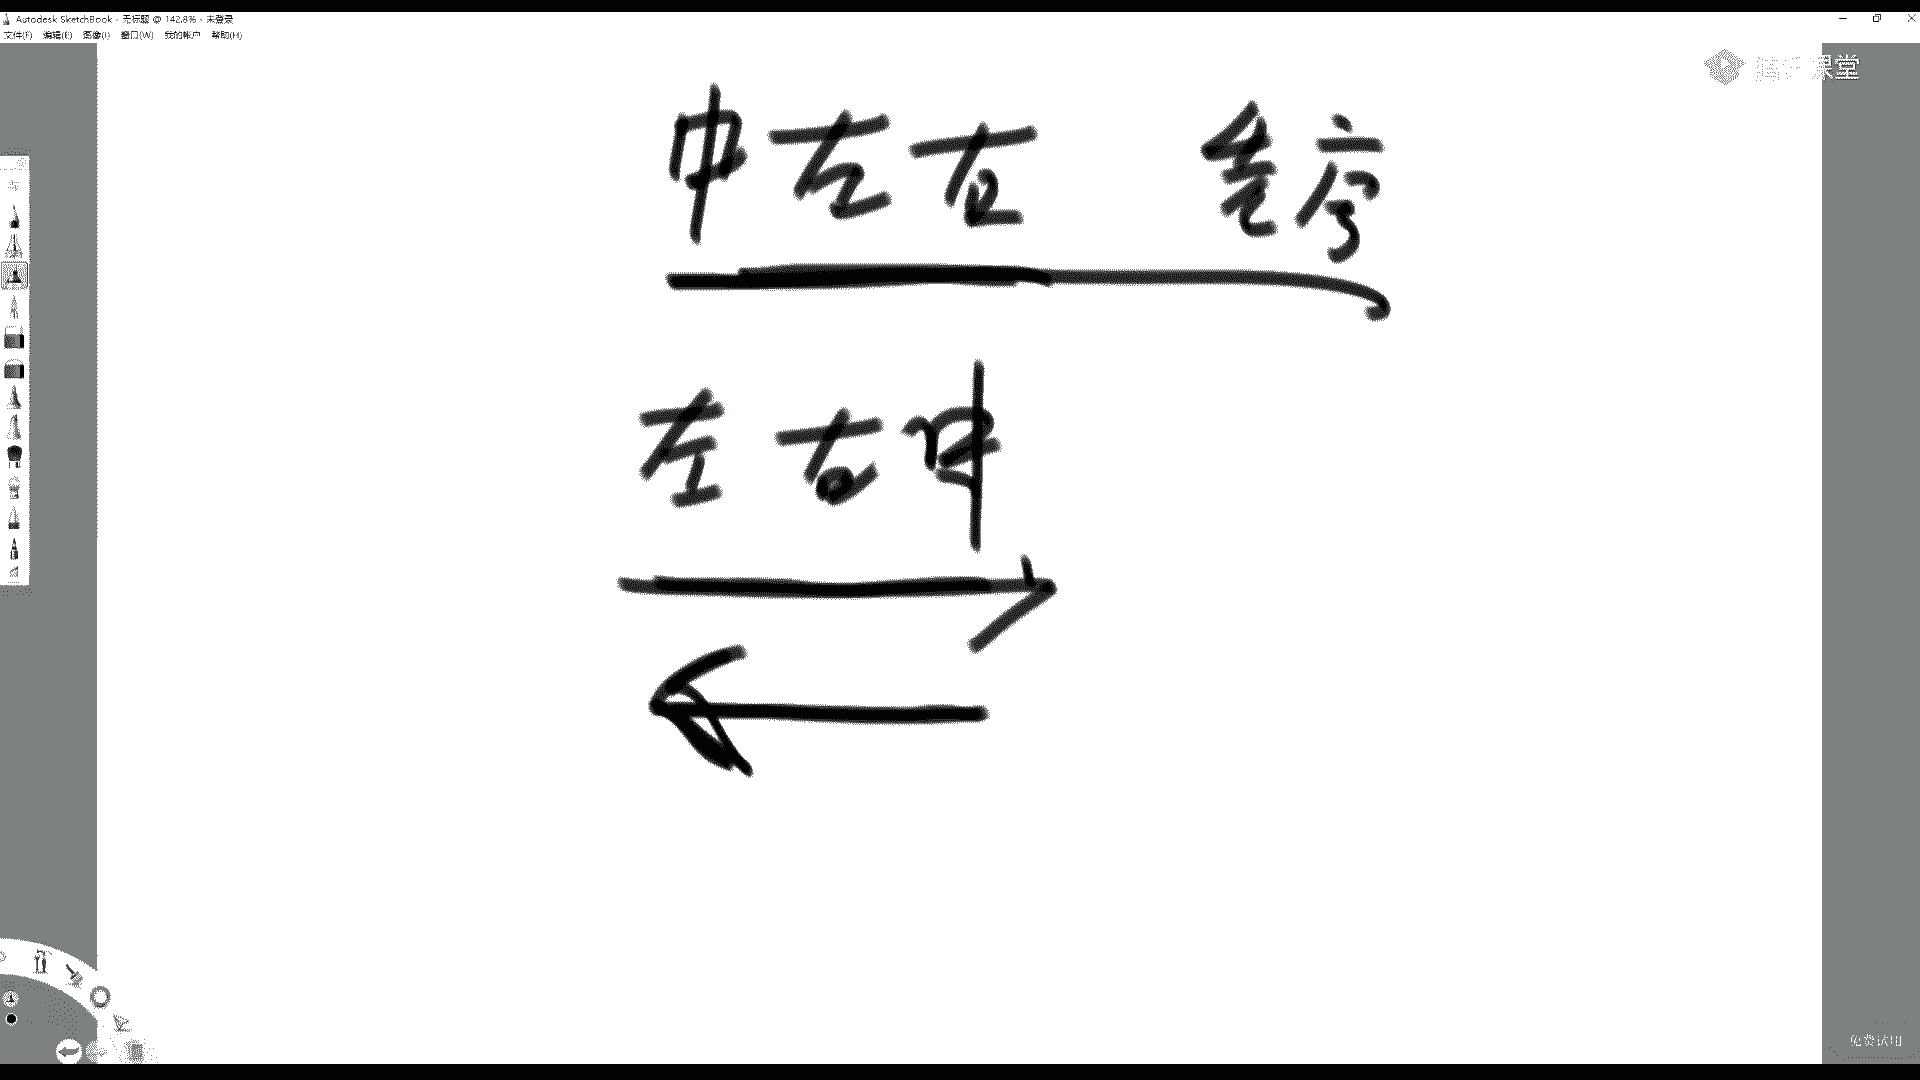 Autodesk SketchBook - 无标题 @ 142.8% - 未登录
文件(F) 编辑(E) 图像(I) 窗口(W) 我的帐户 帮助(H)
腾讯课堂
中左右 先序
左右中
免费试用